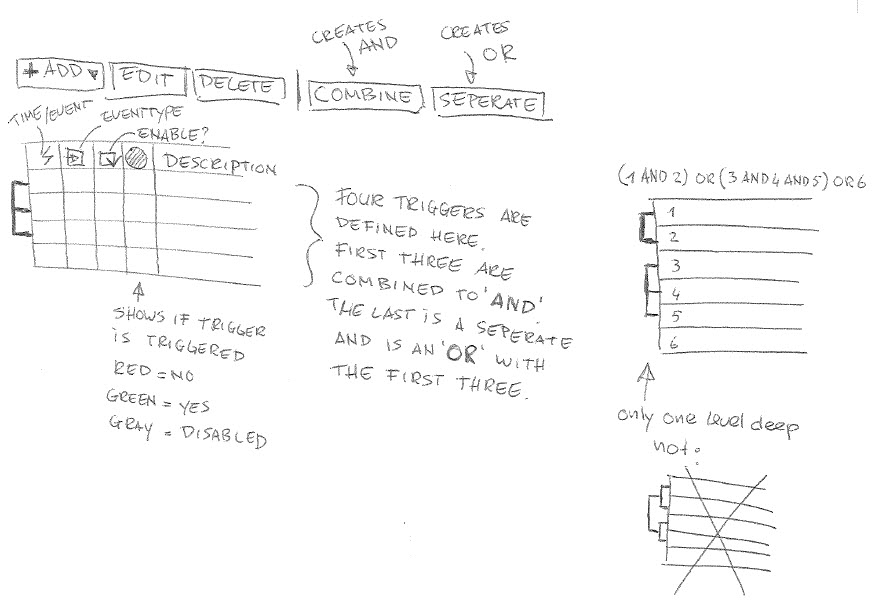 CREATES
AND
CREATES
OR
+ ADD ▾
EDIT
DELETE
COMBINE
SEPERATE
TIME/EVENT
EVENTTYPE
ENABLE?
DESCRIPTION
SHOWS IF TRIGGER
IS TRIGGERED
RED = NO
GREEN = YES
GRAY = DISABLED
FOUR TRIGGERS ARE
DEFINED HERE.
FIRST THREE ARE
COMBINED TO 'AND'.
THE LAST IS A SEPERATE
AND IS AN 'OR' WITH
THE FIRST THREE.
(1 AND 2) OR (3 AND 4 AND 5) OR 6
1
2
3
4
5
6
only one level deep
not: